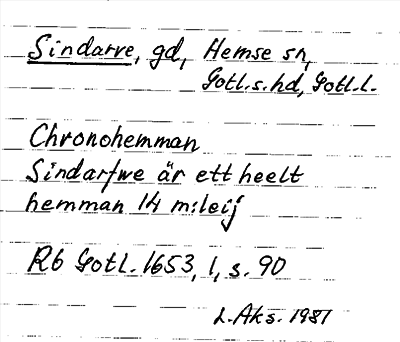 Sindarve, gd, Hemse sn,
Gotl.s.hd, Gotl.l.
Chronohemman
Sindarfwe är ett heelt
hemman 14 m:leij
Rb Gotl. 1653, 1, s. 90
L.Aks. 1981